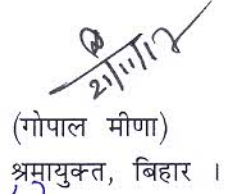 21/11/17
(गोपाल मीणा)
श्रमायुक्त, बिहार ।